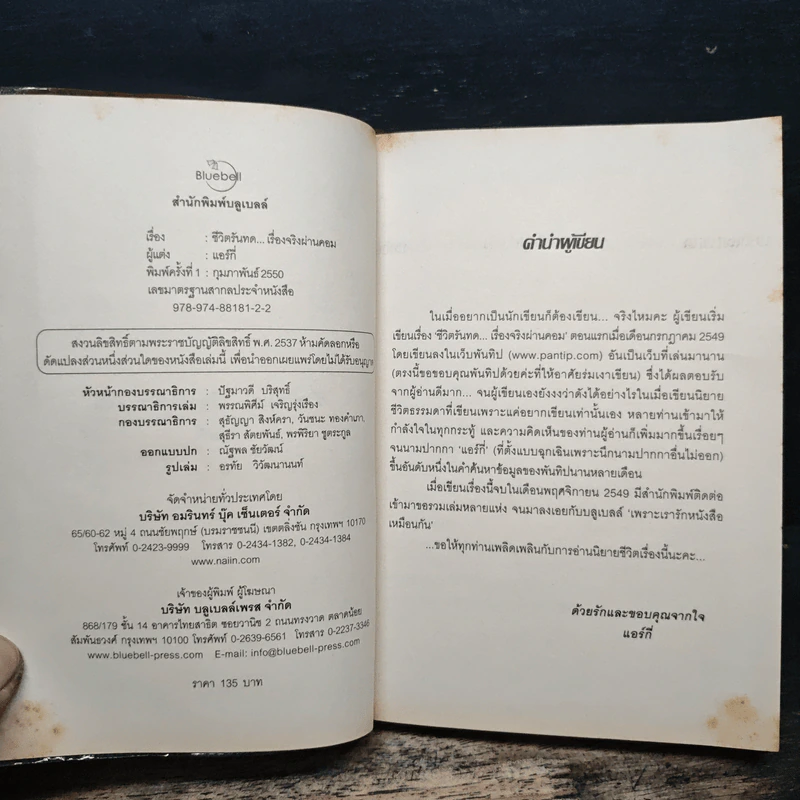 Bluebell
สำนักพิมพ์บลูเบลล์
เรื่อง : ชีวิตรันทด... เรื่องจริงผ่านคอม
ผู้แต่ง : แอร์กี่
พิมพ์ครั้งที่ 1 : กุมภาพันธ์ 2550
เลขมาตรฐานสากลประจำหนังสือ
978-974-88181-2-2
สงวนลิขสิทธิ์ตามพระราชบัญญัติลิขสิทธิ์ พ.ศ. 2537 ห้ามคัดลอกหรือ
ดัดแปลงส่วนหนึ่งส่วนใดของหนังสือเล่มนี้ เพื่อนำออกเผยแพร่โดยไม่ได้รับอนุญาต
หัวหน้ากองบรรณาธิการ : ปัฐมาวดี บริสุทธิ์
บรรณาธิการเล่ม : พรรณพิศีม์ เจริญรุ่งเรือง
กองบรรณาธิการ : สุธัญญา สิงห์ครา, วันชนะ ทองคำเภา,
สุธีรา สัตยพันธ์, พรพิริยา ชูตระกูล
ออกแบบปก : ณัฐพล ชัยวัฒน์
รูปเล่ม : อรทัย วิวัฒนานนท์
จัดจำหน่ายทั่วประเทศโดย
บริษัท อมรินทร์ บุ๊ค เซ็นเตอร์ จำกัด
65/60-62 หมู่ 4 ถนนชัยพฤกษ์ (บรมราชชนนี) เขตตลิ่งชัน กรุงเทพฯ 10170
โทรศัพท์ 0-2423-9999 โทรสาร 0-2434-1382, 0-2434-1384
www.naiin.com
เจ้าของผู้พิมพ์ ผู้โฆษณา
บริษัท บลูเบลล์เพรส จำกัด
868/179 ชั้น 14 อาคารไทยสาธิต ซอยวานิช 2 ถนนทรงวาด ตลาดน้อย
สัมพันธวงศ์ กรุงเทพฯ 10100 โทรศัพท์ 0-2639-6561 โทรสาร 0-2237-3346
www.bluebell-press.com E-mail: info@bluebell-press.com
ราคา 135 บาท
คำนำผู้เขียน
ในเมื่ออยากเป็นนักเขียนก็ต้องเขียน... จริงไหมคะ ผู้เขียนเริ่ม
เขียนเรื่อง 'ชีวิตรันทด... เรื่องจริงผ่านคอม' ตอนแรกเมื่อเดือนกรกฎาคม 2549
โดยเขียนลงในเว็บพันทิป (www.pantip.com) อันเป็นเว็บที่เล่นมานาน
(ตรงนี้ขอขอบคุณพันทิปด้วยค่ะที่ให้อาศัยร่มเงาเขียน) ซึ่งได้ผลตอบรับ
จากผู้อ่านดีมาก... จนผู้เขียนเองยังงงว่าดังได้อย่างไรในเมื่อเขียนนิยาย
ชีวิตธรรมดาที่เขียนเพราะแค่อยากเขียนเท่านั้นเอง หลายท่านเข้ามาให้
กำลังใจในทุกกระทู้ และความคิดเห็นของท่านผู้อ่านก็เพิ่มมากขึ้นเรื่อยๆ
จนนามปากกา 'แอร์กี่' (ที่ตั้งแบบฉุกเฉินเพราะนึกนามปากกาอื่นไม่ออก)
ขึ้นอันดับหนึ่งในคำค้นหาข้อมูลของพันทิปนานหลายเดือน
เมื่อเขียนเรื่องนี้จบในเดือนพฤศจิกายน 2549 มีสำนักพิมพ์ติดต่อ
เข้ามาขอรวมเล่มหลายแห่ง จนมาลงเอยกับบลูเบลล์ 'เพราะเรารักหนังสือ
เหมือนกัน'
...ขอให้ทุกท่านเพลิดเพลินกับการอ่านนิยายชีวิตเรื่องนี้นะคะ...
ด้วยรักและขอบคุณจากใจ
แอร์กี่